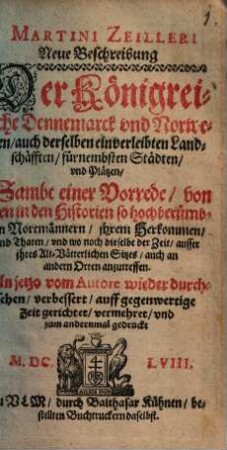 1.
MARTINI ZEILLERI
Neue Beschreibung
Der Königrei-
che Dennemarck vnd Norwe-
en/auch derselben einverleibten Land-
schäfften/ fürnembsten Städten/
vnd Plätzen/
Sambt einer Vorrede/ von
en in den Historien so hochberümb-
n Normännern/ ihrem Herkommen/
nd Thaten/ vnd wo noch dieselbe der Zeit/ ausser
ihres Alt-Vätterlichen Sitzes/ auch an
andern Orten anzutreffen.
An jetzo vom Autore wieder durch-
sehen/ verbessert/ auff gegenwertige
Zeit gerichtet/ vermehret/ vnd
zum andernmal gedruckt
M. DC. LVIII.
VLM/ durch Balthasar Kühnen/ be-
stellten Buchtruckern daselbst.